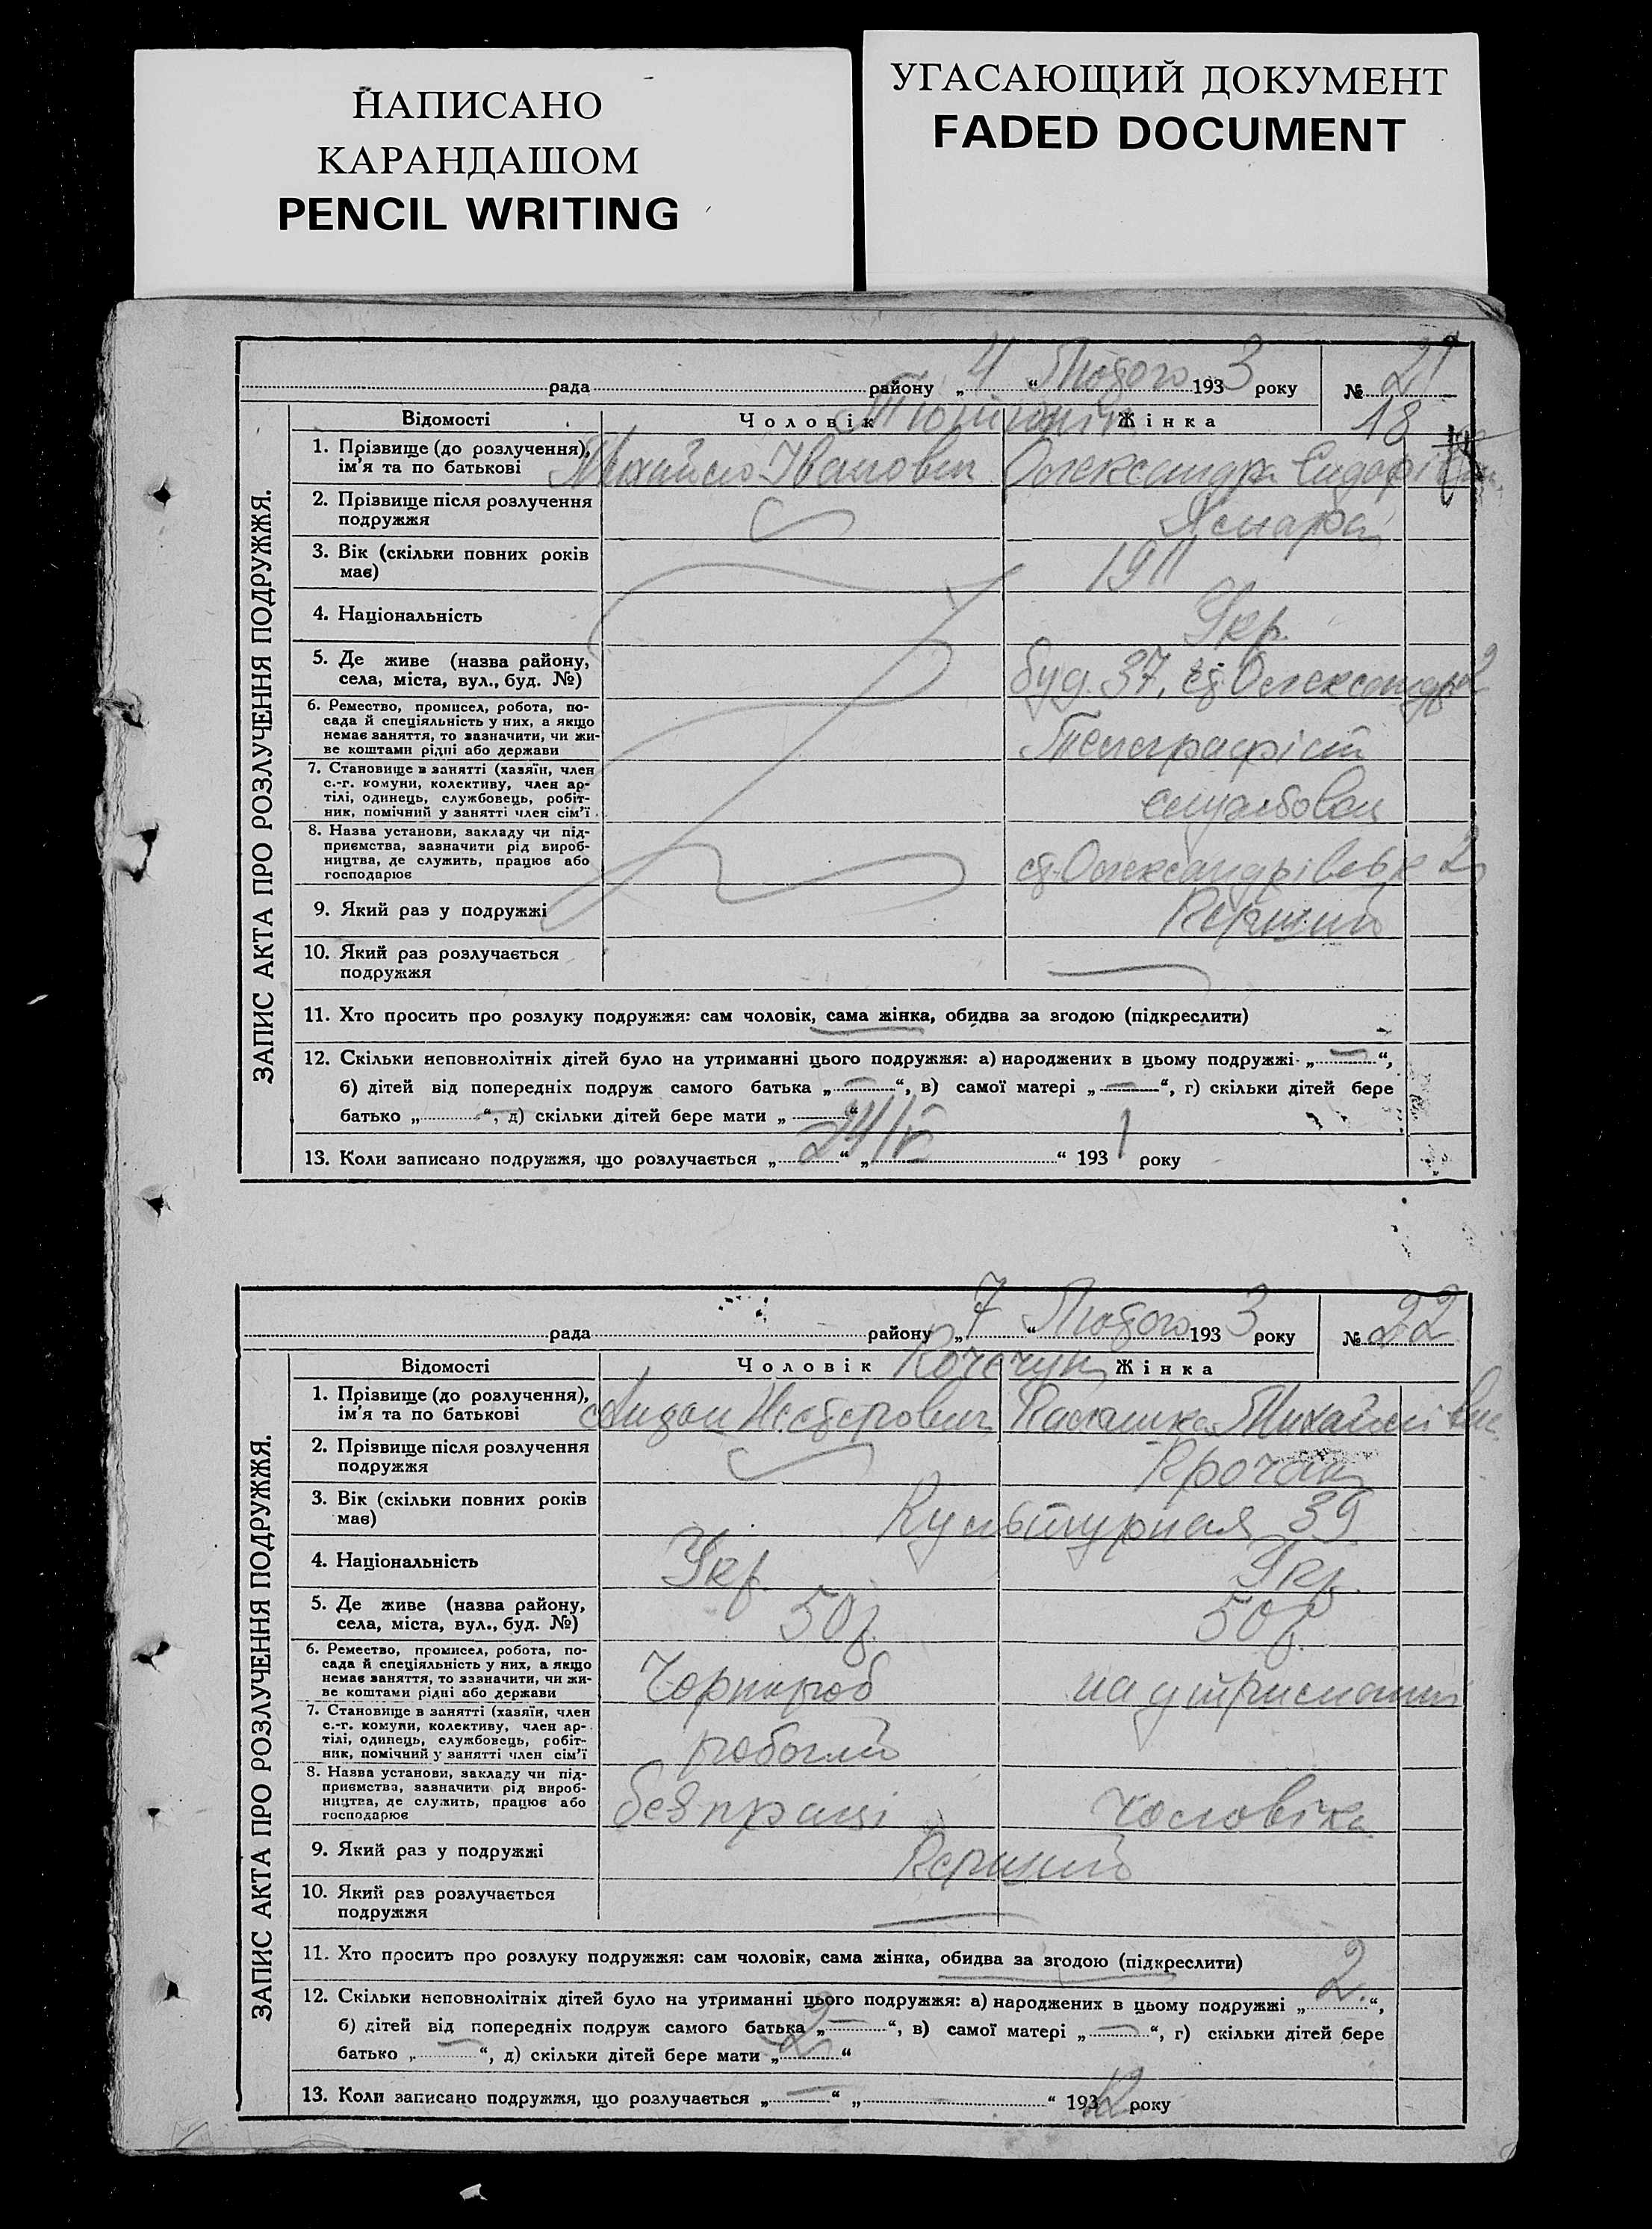 НАПИСАНО
КАРАНДАШОМ
PENCIL WRITING
УГАСАЮЩИЙ ДОКУМЕНТ
FADED DOCUMENT
ЗАПИС АКТА ПРО РОЗЛУЧЕННЯ ПОДРУЖЖЯ.
рада району „4“ Лютого 1933 року № 21
18
Відомості Чоловік Жінка
1. Прізвище (до розлучення), ім'я та по батькові Михайло Іванович Олександра
2. Прізвище після розлучення подружжя
3. Вік (скільки повних років має) 1911
4. Національність Укр.
5. Де живе (назва району, села, міста, вул., буд. №) буд. 37, ст. Олександр 2
6. Ремество, промисел, робота, по-
сада й спеціяльність у них, а якщо
немає заняття, то зазначити, чи жи-
ве коштами рідні або держави Телеграфіст
7. Становище в занятті (хазяїн, член
с.-г. комуни, колективу, член ар-
тілі, одинець, службовець, робіт-
ник, помічний у занятті член сім'ї службовец
8. Назва установи, закладу чи під-
приємства, зазначити рід вироб-
ництва, де служить, працює або
господарює ст. Олександрівськ 2
9. Який раз у подружжі Перший
10. Який раз розлучається подружжя —
11. Хто просить про розлуку подружжя: сам чоловік, сама жінка, обидва за згодою (підкреслити)
12. Скільки неповнолітніх дітей було на утриманні цього подружжя: а) народжених в цьому подружжі „—“,
б) дітей від попередніх подруж самого батька „—“, в) самої матері „—“, г) скільки дітей бере
батько „—“, д) скільки дітей бере мати „—“
13. Коли записано подружжя, що розлучається „24“ „ “ 1931 року
ЗАПИС АКТА ПРО РОЗЛУЧЕННЯ ПОДРУЖЖЯ.
рада району „7“ Лютого 1933 року № 22
Відомості Чоловік Жінка
1. Прізвище (до розлучення), ім'я та по батькові Нестерович Михайлівна
2. Прізвище після розлучення подружжя
3. Вік (скільки повних років має) Культурная 39
4. Національність Укр. Укр.
5. Де живе (назва району, села, міста, вул., буд. №) 50 р. 50 р.
6. Ремество, промисел, робота, по-
сада й спеціяльність у них, а якщо
немає заняття, то зазначити, чи жи-
ве коштами рідні або держави Чорнороб на утриманні
7. Становище в занятті (хазяїн, член
с.-г. комуни, колективу, член ар-
тілі, одинець, службовець, робіт-
ник, помічний у занятті член сім'ї робочий
8. Назва установи, закладу чи під-
приємства, зазначити рід вироб-
ництва, де служить, працює або
господарює без праці чоловіка
9. Який раз у подружжі Перший
10. Який раз розлучається подружжя —
11. Хто просить про розлуку подружжя: сам чоловік, сама жінка, обидва за згодою (підкреслити)
12. Скільки неповнолітніх дітей було на утриманні цього подружжя: а) народжених в цьому подружжі „2“,
б) дітей від попередніх подруж самого батька „—“, в) самої матері „—“, г) скільки дітей бере
батько „—“, д) скільки дітей бере мати „2“
13. Коли записано подружжя, що розлучається „—“ „—“ 193 року